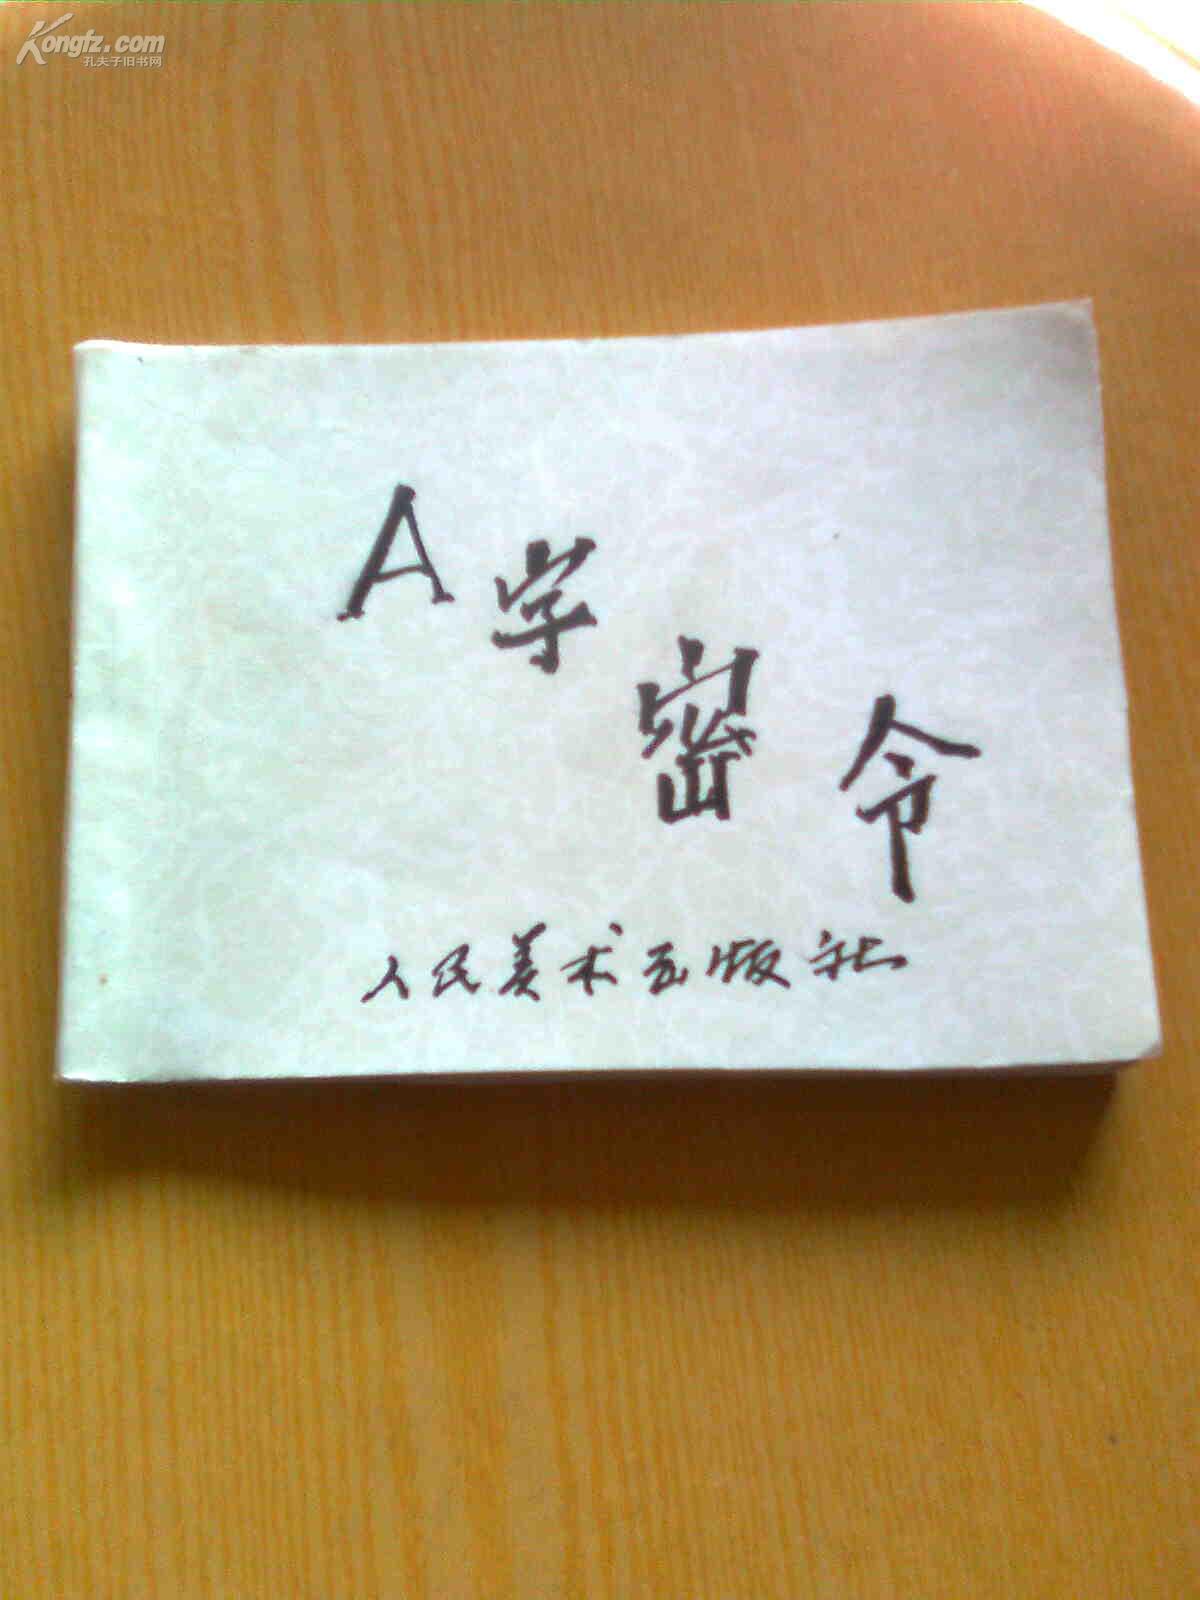 Kongfz.com
孔夫子旧书网
A字密令
人民美术出版社